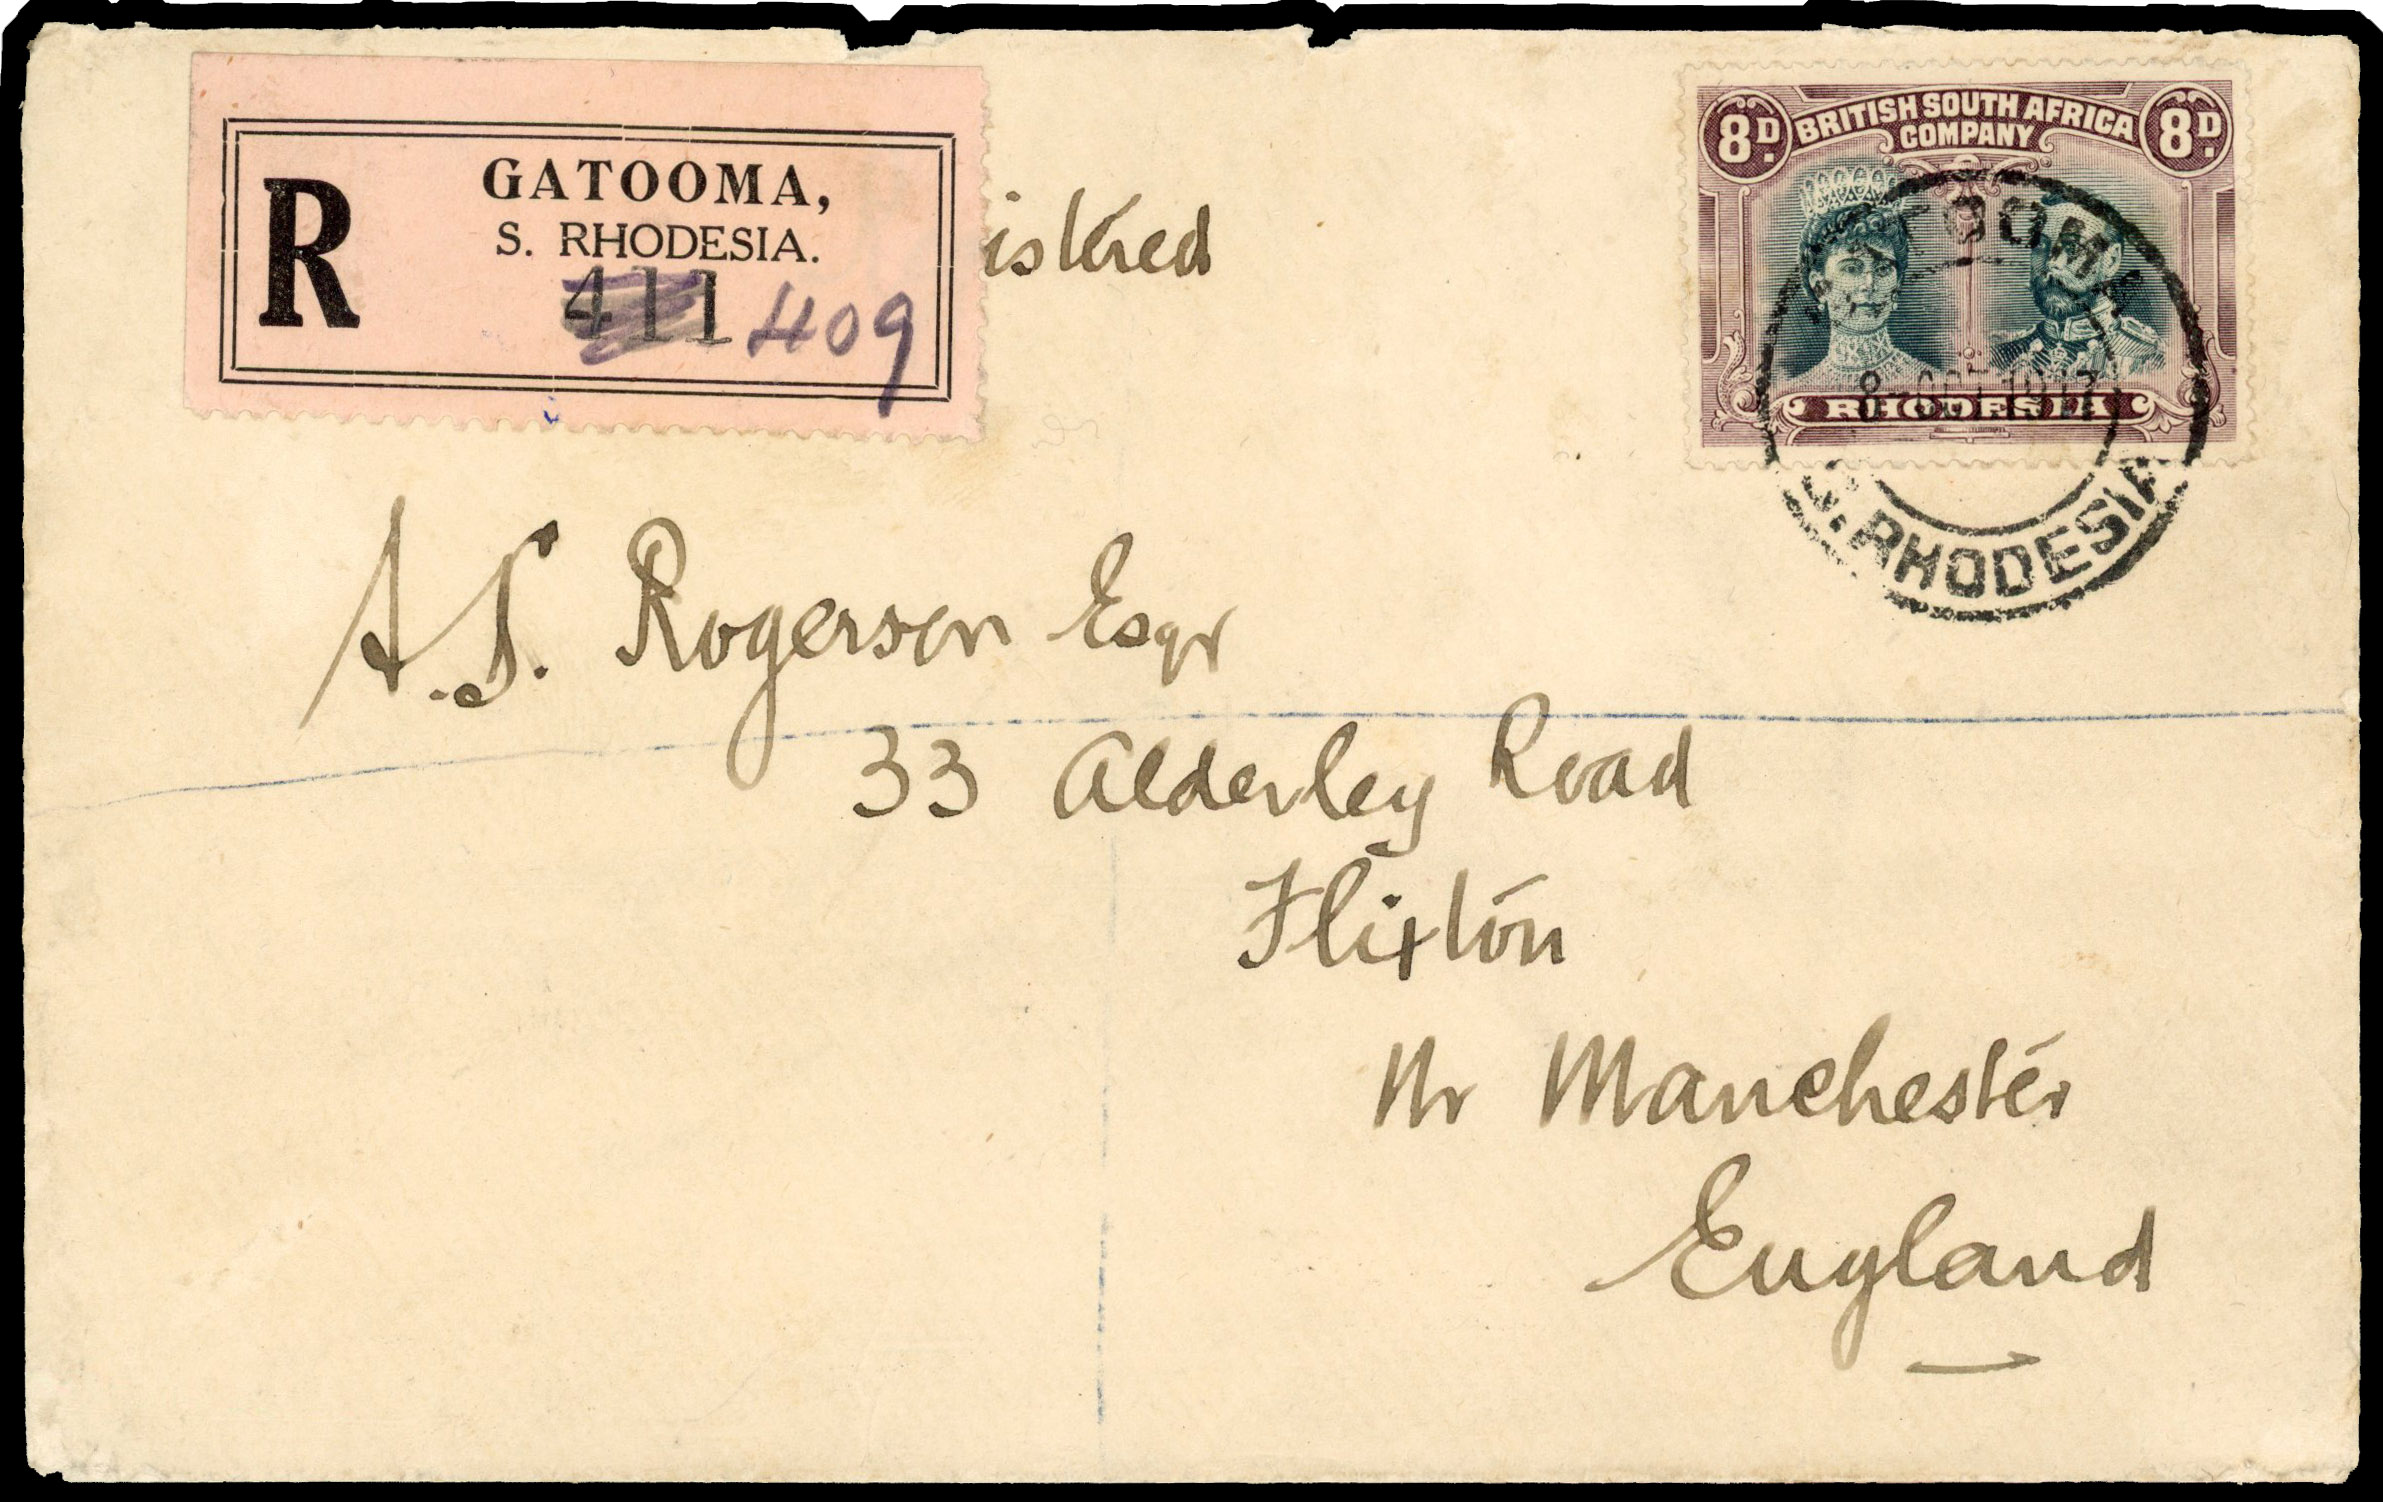 R
GATOOMA,
S. RHODESIA.
411 409
istered
8D. BRITISH SOUTH AFRICA 8D.
COMPANY
RHODESIA
TOOMA
8-OCT 1917
S. RHODESIA
A.S. Rogerson Esqr
33 Alderley Road
Flixton
Nr Manchester
England